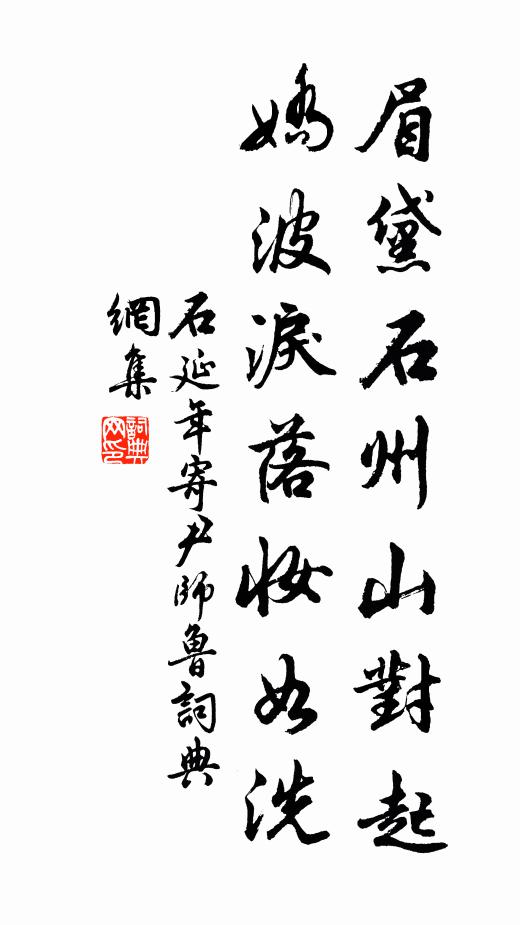 眉黛石州山對起
嬌波淚落妝如洗
石延年寄尹師魯詞典
網集
詞典
网印